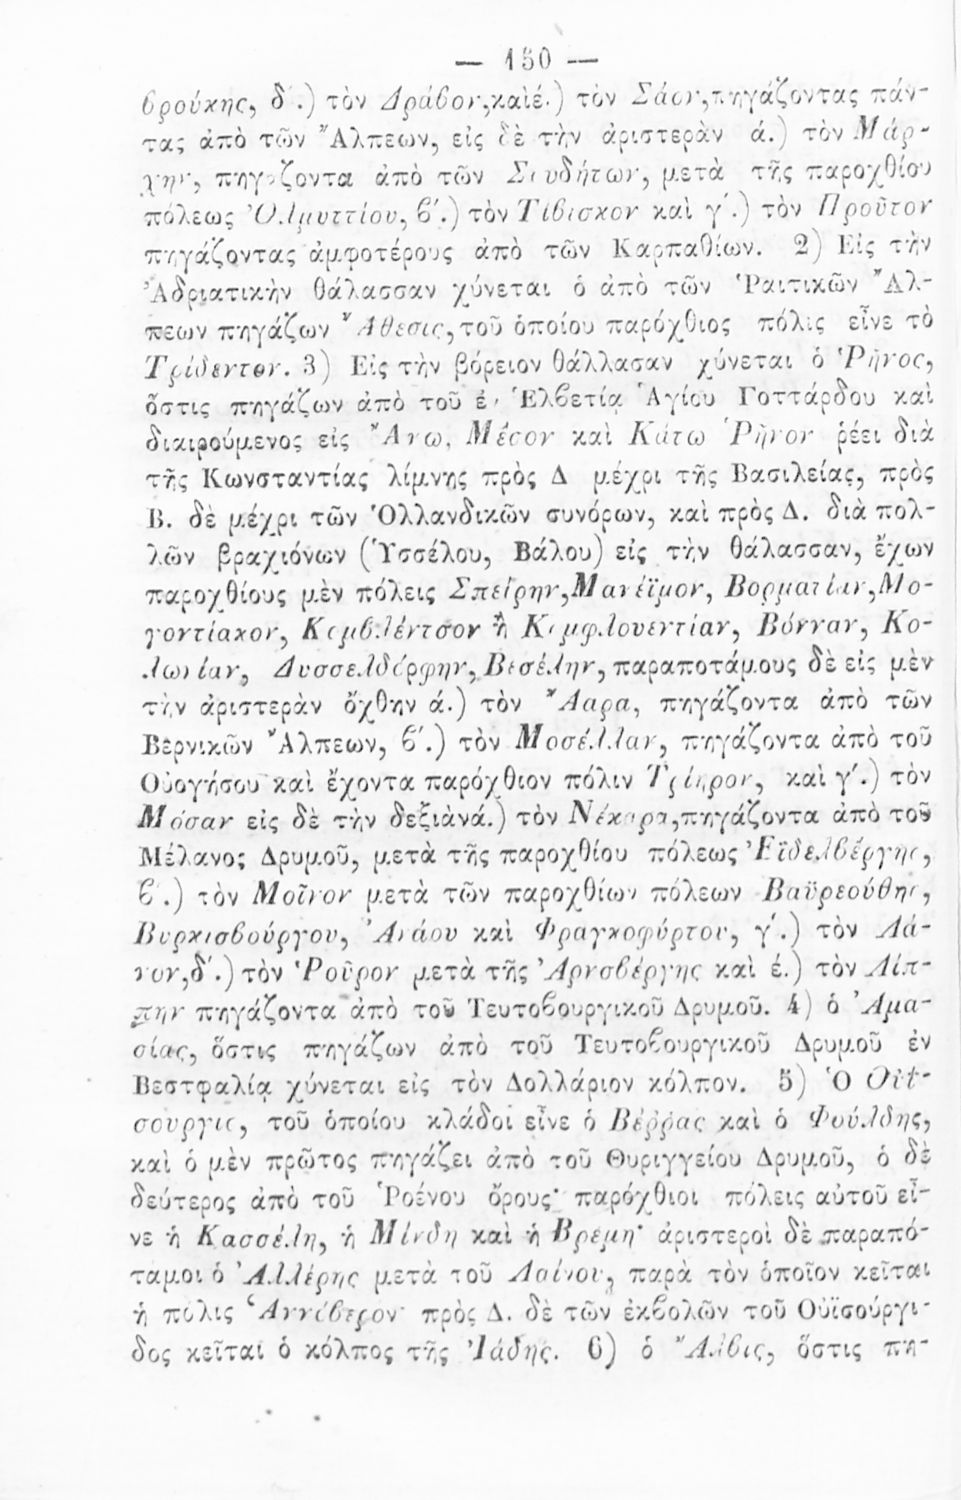 — 150 —
βρούκης, δ΄.) τὸν Δράβον, καὶ έ.) τὸν Σάον, πηγάζοντας πάν-
τας ἀπὸ τῶν Ἄλπεων, εἰς δὲ τὴν ἀριστερὰν ά.) τὸν Μάρ-
χην, πηγάζοντα ἀπὸ τῶν Σουδήτων, μετὰ τῆς παροχθίου
πόλεως Ὀλμυττίου, β΄.) τὸν Τίβισκον καὶ γ΄.) τὸν Προῦτον
πηγάζοντας ἀμφοτέρους ἀπὸ τῶν Καρπαθίων. 2) Εἰς τὴν
Ἀδριατικὴν θάλασσαν χύνεται ὁ ἀπὸ τῶν Ῥαιτικῶν Ἄλ-
πεων πηγάζων Ἄθεσις, τοῦ ὁποίου παρόχθιος πόλις εἶνε τὸ
Τρίδεντον. 3) Εἰς τὴν βόρειον θάλλασαν χύνεται ὁ Ῥῆνος,
ὅστις πηγάζων ἀπὸ τοῦ ἐν Ἑλβετίᾳ Ἁγίου Γοττάρδου καὶ
διαιρούμενος εἰς Ἄνω, Μέσον καὶ Κάτω Ῥῆνον ῥέει διὰ
τῆς Κωνσταντίας λίμνης πρὸς Δ μέχρι τῆς Βασιλείας, πρὸς
Β. δὲ μέχρι τῶν Ὁλλανδικῶν συνόρων, καὶ πρὸς Δ. διὰ πολ-
λῶν βραχιόνων (Ὑσσέλου, Βάλου) εἰς τὴν θάλασσαν, ἔχων
παροχθίους μὲν πόλεις Σπείρην, Μανέϊμον, Βορματίαν, Μο-
γοντίακον, Κομβλέντσον ἢ Κομφλουεντίαν, Βόνναν, Κο-
λωνίαν, Δυσσελδόρφην, Βεσέλην, παραποτάμους δὲ εἰς μὲν
τὴν ἀριστερὰν ὄχθην ά.) τὸν Ἄαρα, πηγάζοντα ἀπὸ τῶν
Βερνικῶν Ἄλπεων, β΄.) τὸν Μοσέλλαν, πηγάζοντα ἀπὸ τοῦ
Οὐογήσου καὶ ἔχοντα παρόχθιον πόλιν Τρίηρον, καὶ γ΄.) τὸν
Μόσαν εἰς δὲ τὴν δεξιὰν ά.) τὸν Νέκαρα, πηγάζοντα ἀπὸ τοῦ
Μέλανος Δρυμοῦ, μετὰ τῆς παροχθίου πόλεως Ἐϊδελβέργης,
β΄.) τὸν Μοῖνον μετὰ τῶν παροχθίων πόλεων Βαϋρεούθης,
Βυρκισβούργου, Ἀνάου καὶ Φραγκοφύρτου, γ΄.) τὸν Λά-
νον, δ΄.) τὸν Ῥοῦρον μετὰ τῆς Ἀρνσβέργης καὶ έ.) τὸν Λίπ-
πην πηγάζοντα ἀπὸ τοῦ Τευτοβουργικοῦ Δρυμοῦ. 4) ὁ Ἀμα-
σίας, ὅστις πηγάζων ἀπὸ τοῦ Τευτοβουργικοῦ Δρυμοῦ ἐν
Βεστφαλίᾳ χύνεται εἰς τὸν Δολλάριον κόλπον. 5) Ὁ Οὐϊ-
σουργις, τοῦ ὁποίου κλάδοι εἶνε ὁ Βέῤῥας καὶ ὁ Φούλδης,
καὶ ὁ μὲν πρῶτος πηγάζει ἀπὸ τοῦ Θυριγγείου Δρυμοῦ, ὁ δὲ
δεύτερος ἀπὸ τοῦ Ῥοένου ὄρους· παρόχθιοι πόλεις αὐτοῦ εἶ-
νε ἡ Κασσέλη, ἡ Μίνδη καὶ ἡ Βρέμη· ἀριστεροὶ δὲ παραπό-
ταμοι ὁ Ἀλλέρης μετὰ τοῦ Λαίνου, παρὰ τὸν ὁποῖον κεῖται
ἡ πόλις Ἁννόβερον· πρὸς Δ. δὲ τῶν ἐκβολῶν τοῦ Οὐϊσούργι-
δος κεῖται ὁ κόλπος τῆς Ἰάδης. 6) ὁ Ἄλβις, ὅστις πη-